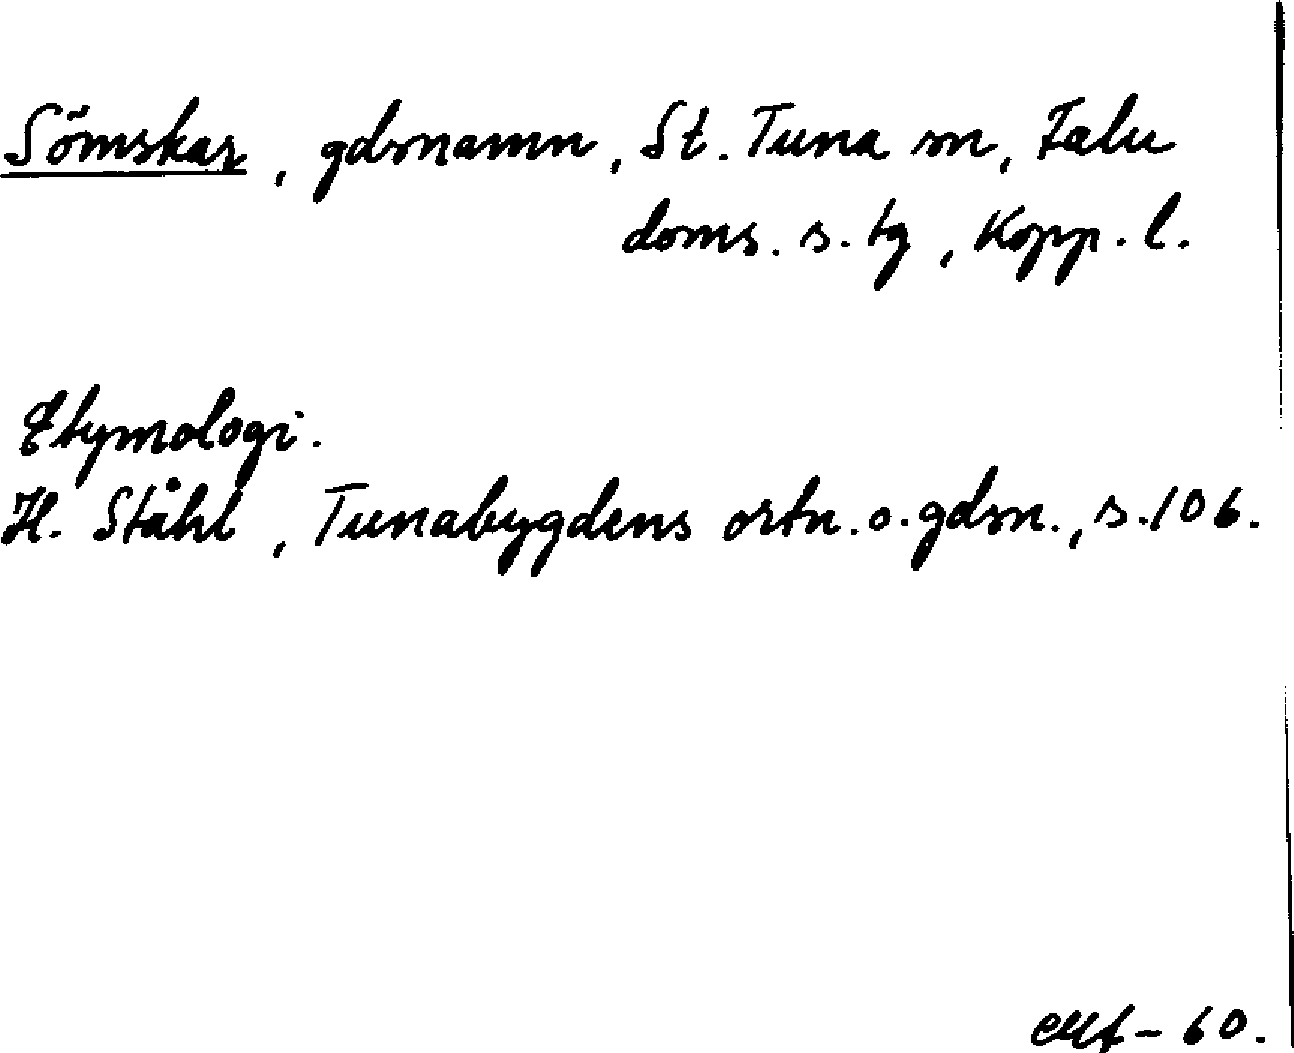 Sömskar, gdsnamn, St. Tuna sn, Falu
doms. s. tg, Kopp. l.
Etymologi.
H. Ståhl, Tunabygdens ortn. o. gdsn., s. 106.
- 60.